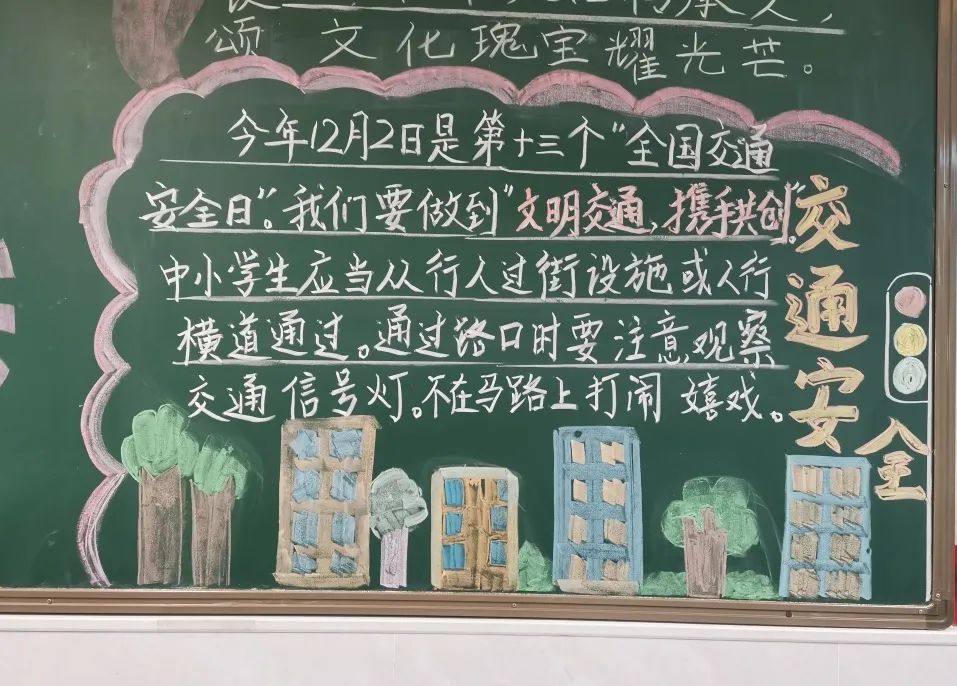 颂文化瑰宝耀光芒。
今年12月2日是第十三个"全国交通
安全日"。我们要做到"文明交通,携手共创"。
中小学生应当从行人过街设施或人行
横道通过。通过路口时要注意观察
交通信号灯。不在马路上打闹嬉戏。
交通安全